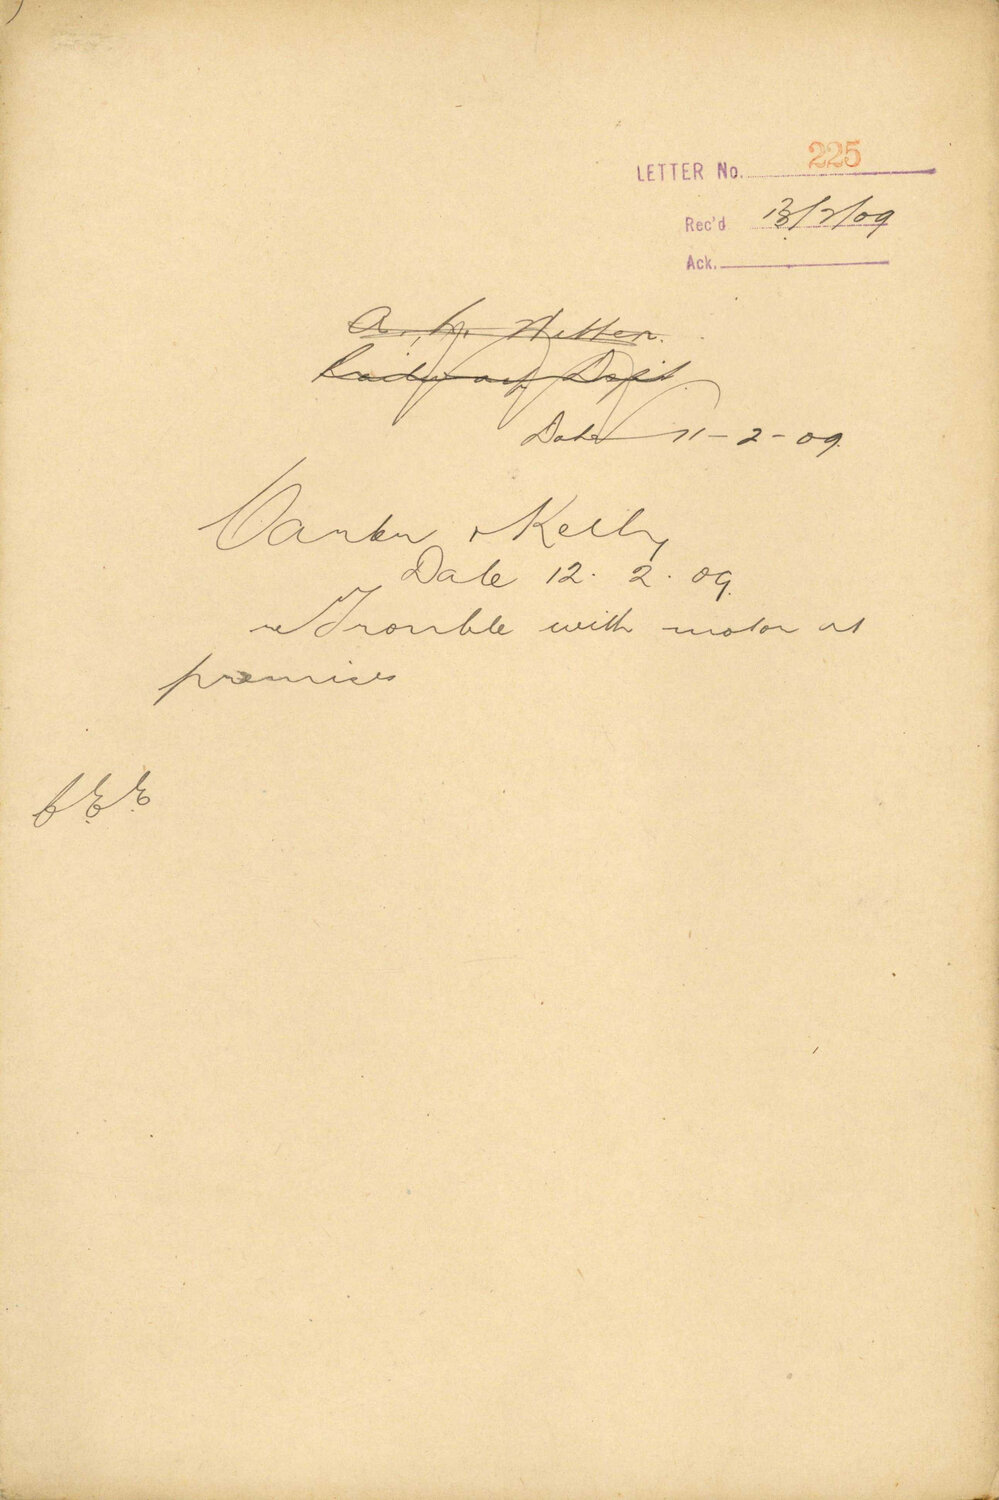 LETTER No. 225
Rec'd 13/2/09
Ack.
A. W. Witten.
Railway Dept.
Date 11-2-09.
& Kelly
Date 12. 2. 09.
re Trouble with motor at
premises
C.E.E